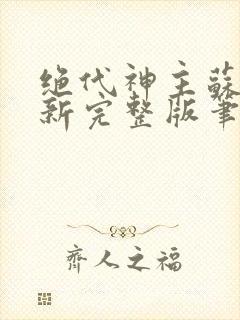 绝代神主蘇
新完整版筆
齊人之福